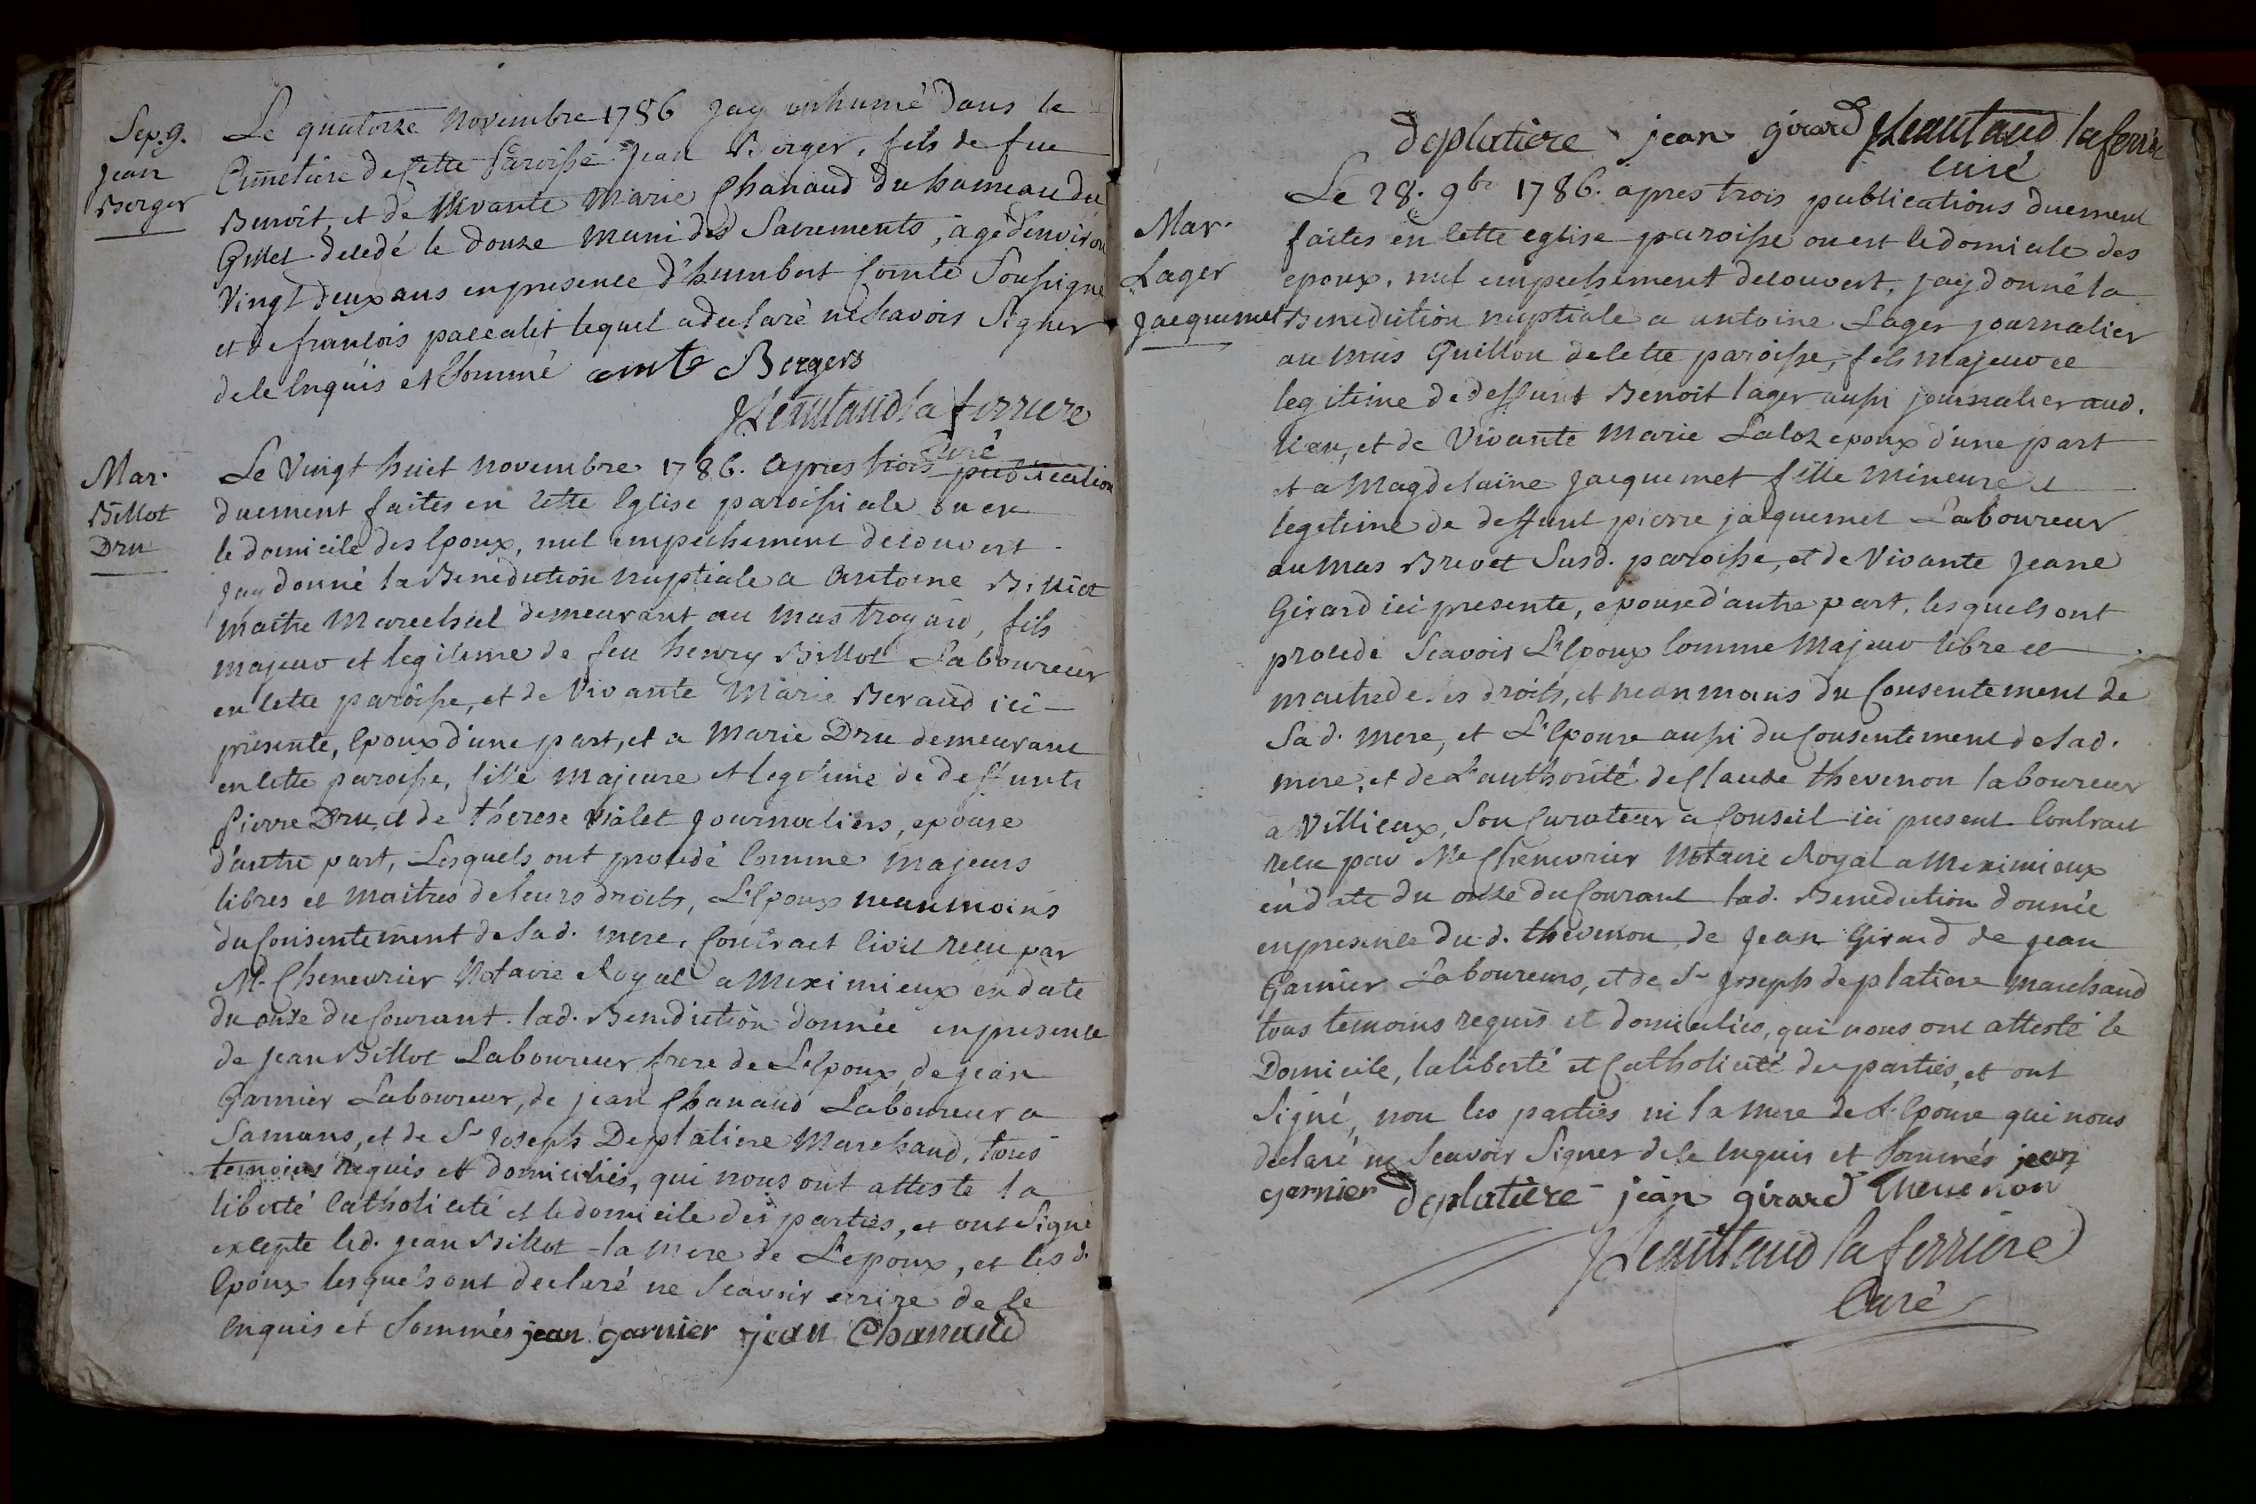 Sep. 9.
Jean
Berger
Le quatorze Novembre 1786 Jay enhumé dans le
Cimetiere de Cette Paroisse Jean Berger, fils de feu
Benoit, et de Vivante Marie Chanaud du hameau du
Gillet decedé le douze muni des Sacrements, agé d'environ
Vingt deux ans en presence d'humbert Comte Soussigné
et de francois pascalet lequel a declaré ne scavoir Signer
de ce Enquis et Sommé comte Bergers
Heautaud la ferriere
Curé
Mar.
Billot
Dru
Le Vingt huit novembre 1786. apres trois publication
duement faites en Cette Eglise paroissiale ou en
le domicile des Epoux, nul empechement decouvert
Jay donné la Benediction nuptiale a Antoine Billot
maitre Marechal demeurant au mas trogaid, fils
majeur et legitime de feu henry Billot Laboureur
en Cette paroisse, et de Vivante Marie Beraud ici
presente, Epoux d'une part, et a Marie Dru demeurant
en Cette paroisse, fille majeure et legitime de deffunts
Pierre Dru, et de therese Vialet Journaliers, epouse
d'autre part, Lesquels ont procedé Comme majeurs
libres et maitres de leurs droits, L'Epoux neanmoins
du Consentement de Sad. mere, Contract Civil recu par
Me. Chenevrier Notaire Royal a Meximieux en date
du onze du Courant. lad. Benediction donnée en presence
de Jean Billot Laboureur frere de L'Epoux, de jean
Garnier Laboureur, de jean Chanaud Laboureur a
Samans, et de Sr Joseph Deplatiere Marchand, tous
temoins requis et domicilies, qui nous ont atteste la
liberté Catholicité et le domicile des parties, et ont Signé
excepte led. jean Billot la mere de L'epoux, et lesd.
Epoux lesquels ont declaré ne Scavoir ecrire de ce
Enquis et Sommés jean garnier jean Chanaud
deplatiere jean girard Heautaud la ferriere
curé
Mar.
Lager
Jacquemet
Le 28. 9bre 1786. apres trois publications duement
faites en Cette eglise paroisse ou est le domicile des
epoux, nul empechement decouvert, jay donné la
Benediction nuptiale a antoine Lager journalier
au mas Guillon de Cette paroisse, fils majeur et
legitime de deffunt Benoit lager aussi journalier aud.
lieu, et de Vivante Marie Laloz epoux d'une part
et a Magdelaine Jacquemet fille Mineure et
legitime de deffunt pierre jacquemet Laboureur
au mas Brevet Susd. paroisse, et de Vivante Jeane
Girard ici presente, epouse d'autre part, lesquels ont
procedé Scavoir L'Epoux Comme Majeur libre et
maitre de ses droits, et neanmoins du Consentement de
Sad. mere, et L'Epouse aussi du Consentement de Sad.
mere, et de L'authorité de Claude thevenon laboureur
a Villieux, Son Curateur a Conseil ici present Contract
recu par Me Chenevrier Notaire Royal a Meximieux
en date du onze du Courant lad. Benediction donnée
en presence dud. thevenon, de Jean Girard de jean
Garnier Laboureurs, et de Sr Joseph deplatiere marchand
tous temoins requis et domicilies, qui nous ont attesté le
Domicile, la liberté et Catholicité des parties, et ont
Signé, non les parties ni la mere de L'Epouse qui nous
declaré ne Scavoir Signer de Ce Enquis et Sommés jean
garnier deplatiere jean girard Thevenon
Heautaud la ferriere
Curé